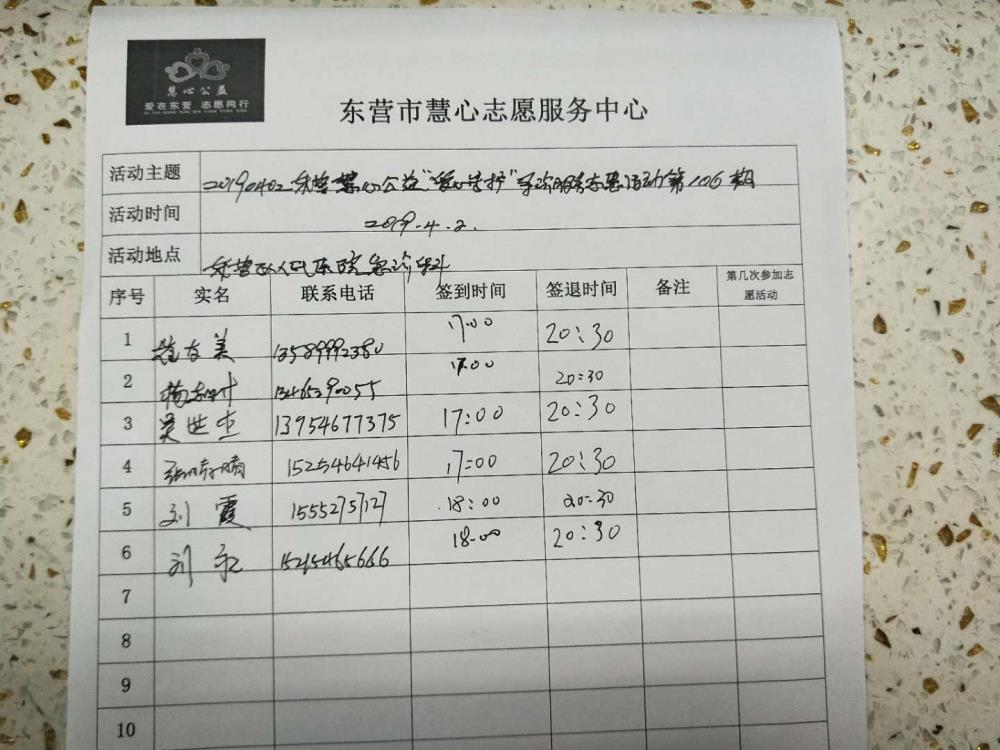 慧心公益
爱在东营 志愿同行
东营市慧心志愿服务中心
活动主题 20190402东营慧心公益"爱心守护"导诊服务志愿活动第106期
活动时间 2019.4.2.
活动地点 东营区人民医院急诊科
序号 实名 联系电话 签到时间 签退时间 备注 第几次参加志愿活动
1 美 13589992380 17:00 20:30
2 13465290055 17:00 20:30
3 吴世杰 13954677375 17:00 20:30
4 15254641456 17:00 20:30
5 刘霞 15552757127 18:00 20:30
6 刘永 15215465666 18:00 20:30
7
8
9
10